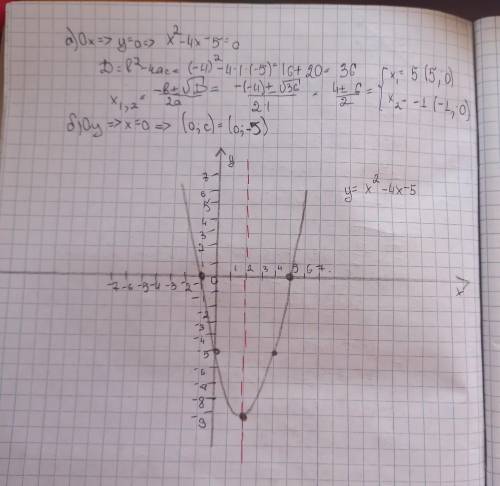 а) Ox => y=0 => x²-4x-5=0
D=b²-4ac=(-4)²-4·1·(-5)=16+20=36
x₁,₂= -b±√D/2a = -(-4)±√36/2·1 = 4±6/2 = { x₁=5 (5;0)
x₂=-1 (-1;0)
б) Oy => x=0 => (0;c)=(0;-5)
y
y= x²-4x-5
7
6
5
4
3
2
1
-7 -6 -5 -4 -3 -2 0 1 2 3 4 5 6 7
x
-2
-3
-4
-5
-6
-8
-9